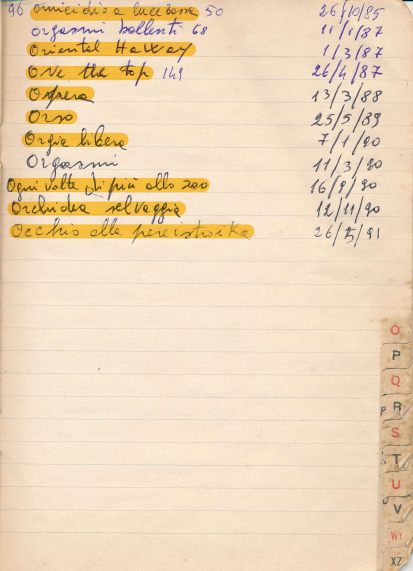 96 omicidio a luce rossa 50 26/10/85
orgasmi bollenti 68 11/1/87
Oriental Haway 1/3/87
Ove the top 149 26/4/87
Opera 13/3/88
Orso 25/5/89
Orgia libera 7/1/90
Orgasmi 11/3/90
Ogni volta di più allo zoo 16/9/90
Orchidea selvaggia 12/11/90
Occhio alla pereistroika 26/5/91
O
P
Q
R
S
T
U
V
WY
XZ